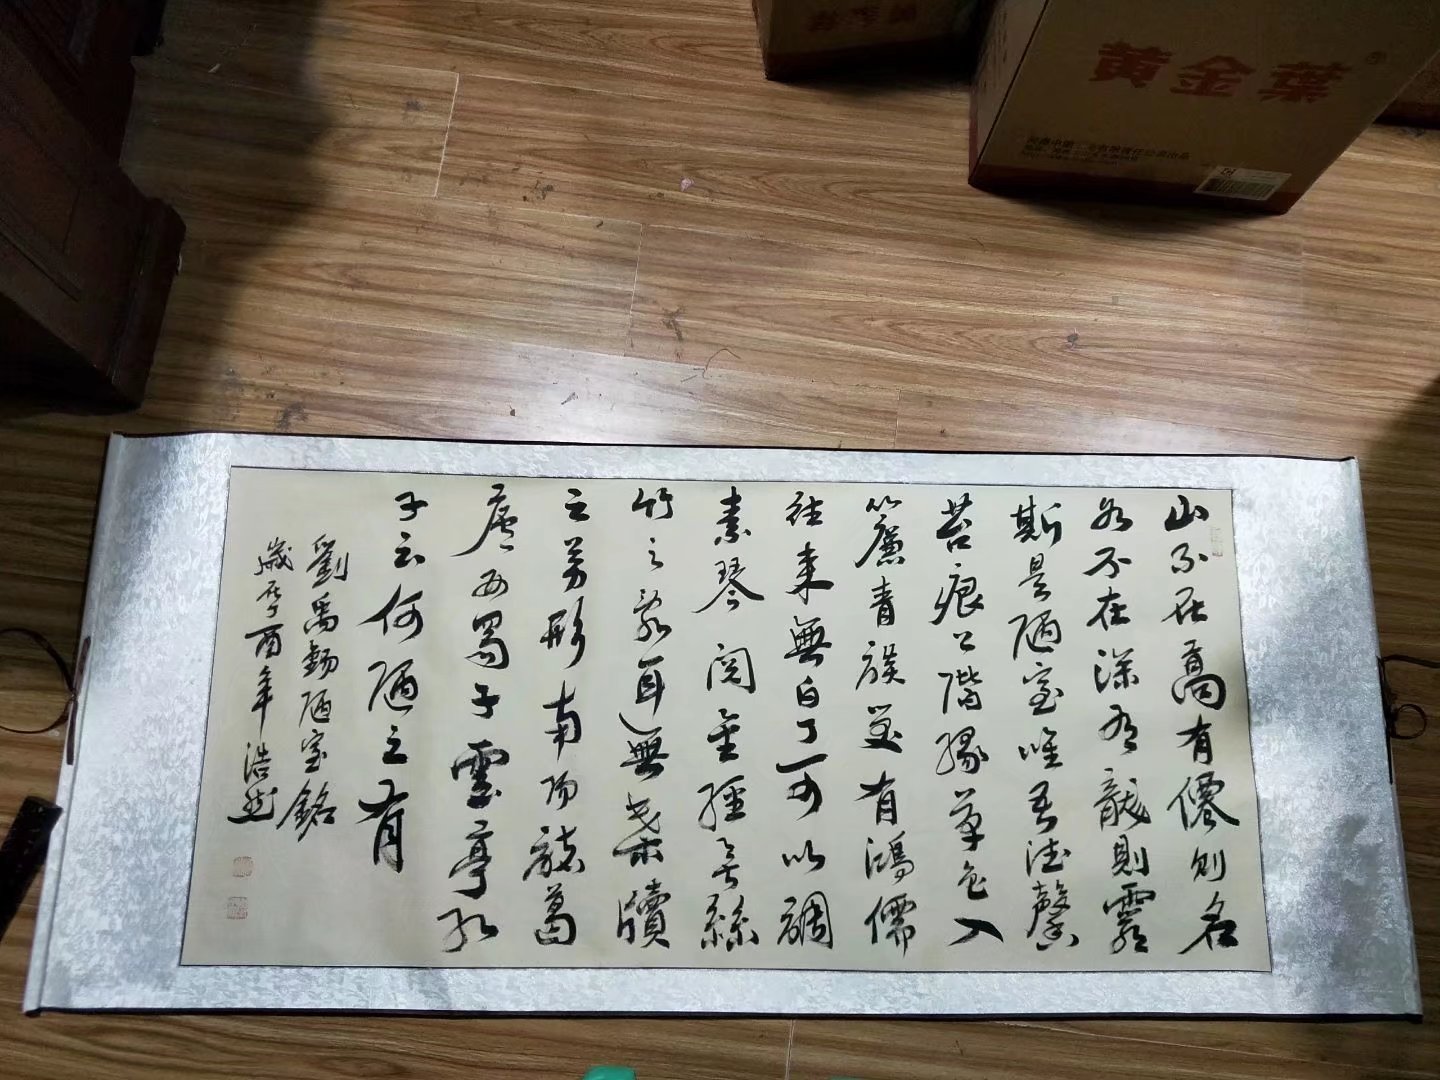 山不在高有僊則名
水不在深有龍則靈
斯是陋室唯吾德馨
苔痕上階緣草色入
簾青談笑有鴻儒
往來無白丁可以調
素琴閱金經無絲
竹之亂耳無案牘
之勞形南陽諸葛
廬西蜀子雲亭孔
子云何陋之有
劉禹錫陋室銘
歲在丁酉年浩然
黄金葉